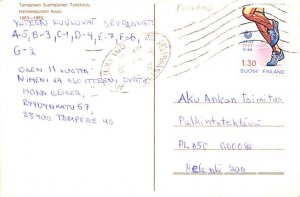 Tampereen Suomalainen Tyttökoulu
Hämeenpuiston koulu
1883–1983
YHTEEN KUULUVAT SEURAAVAT:
A-5, B-3, C-1, D-4, E-7, F-6, ja
G-2
OLEN 11 VUOTTA
NIMENI JA OSOITTEENI OVAT:
MONA GEIGER,
33400 TAMPERE 40
1.30
SUOMI FINLAND
Aku Ankan toimitus
Palkintotehtävä
PL 850
Helsinki